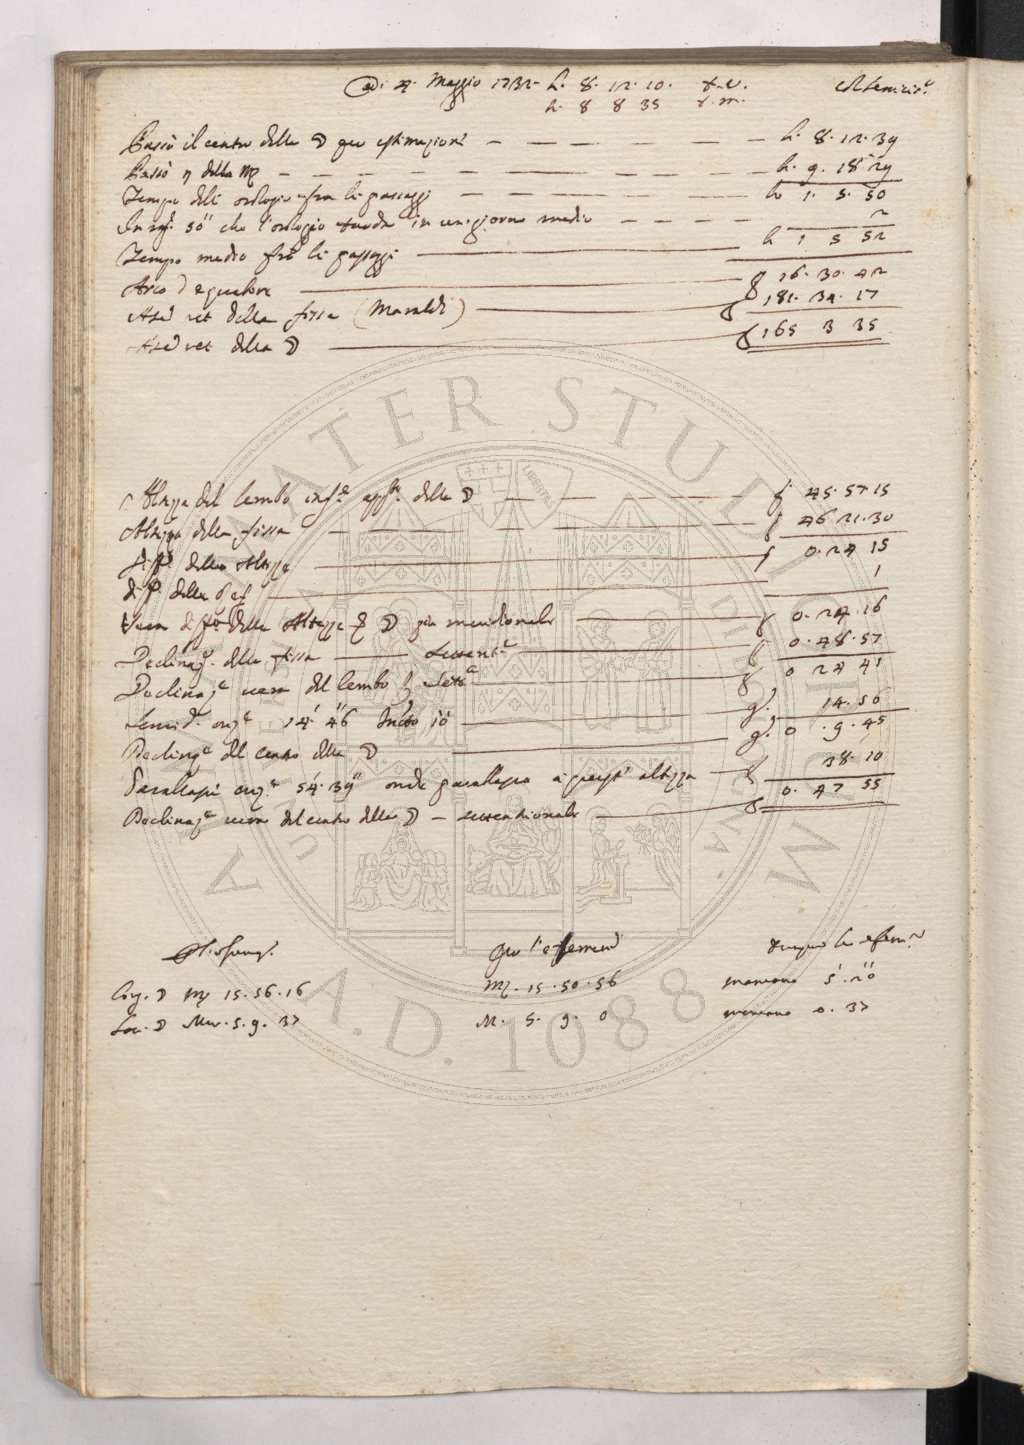 Adi 4. Maggio 1732. h. 8. 12. 10. t. v. Al semicir.º
h. 8 8 35 t. m.
Passò il centro della ☽ per estimazioni h. 8. 12. 39
Passò η della ♍ h. 9. 18. 29
Tempo dell' orologio fra li passaggi h 1. 5. 50
50" che l'orologio tarda in un giorno medio 2
Tempo medio fra li passaggi h 1 5 52
Arco d'equatore g 16. 30. 42
Asc. ret. della fissa (Maraldi) g 181. 34. 17
Asc. ret. della ☽ g 165 3 35
Altezza del lembo inf.e app.e della ☽ g 45. 57 15
Altezza della fissa g 46 21. 30
diff.a della Altezza g 0. 24 15
diff.a della ref. 1
Vera diff.a della Altezza ☽ più meridionale g 0. 24. 16
Declinaz.e della fissa settent.e g 0. 48. 57
Declinaz.e vera del lembo sett.e g 0 24 41
Semid.o oriz.e 14' 46" 10" g. 14. 56
Declinaz.e del centro della ☽ g. 0 . 9. 45
Parallasse oriz.e 54'. 39" onde parallasse a questa altezza g 38. 10
Declinaz.e vera del centro della ☽ settentrionale g 0. 47 55
Per l'effemeridi
Long. ☽ ♍ 15. 56. 16 ♍. 15. 50. 56 mancano 5'. 20"
Lat. ☽ Mer. 5. 9. 37 M. 5. 9. 0 mancano 0. 37
ALMA MATER STUDIORUM
A.D. 1088